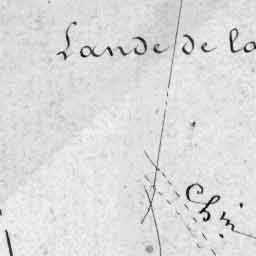 Lande de la
Ch.in